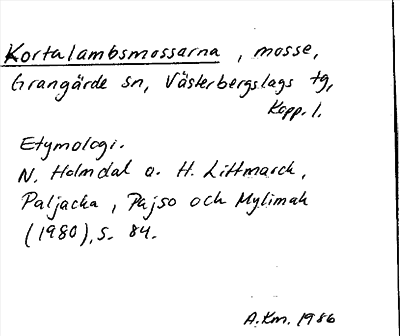 Kortalambsmossarna, mosse,
Grangärde sn, Västerbergslags tg,
Kopp. l.
Etymologi.
N. Holmdal o. H. Littmarck,
Paljacka, Pajso och Mylimak
(1980), s. 84.
A.Km. 1986